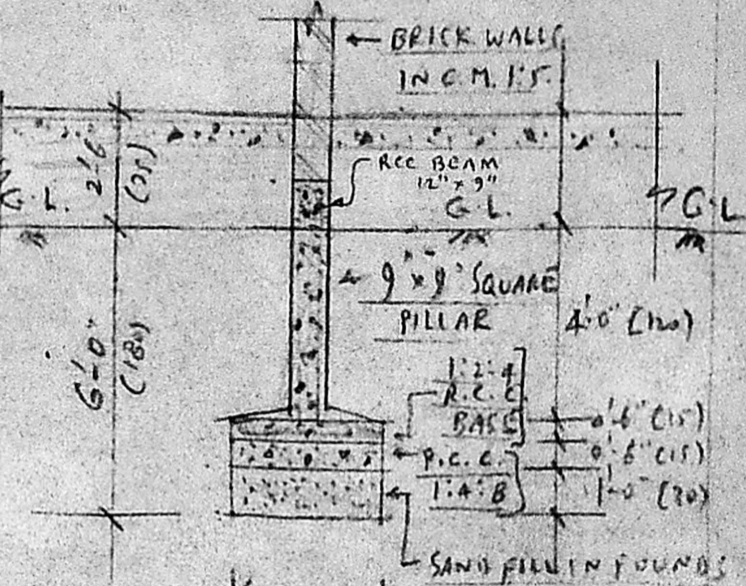 BRICK WALLS
IN C.M. 1:5.
RCC BEAM
12" x 9"
2'-6
(75)
G.L.
G.L.
G.L
9" x 9" SQUARE
PILLAR
4'-0" (120)
6'-0"
(180)
1:2:4
R.C.C.
BASE
0'-6" (15)
P.C.C.
0'-6" (15)
1:4:8
1'-0" (30)
SAND FILL IN FOUNDS